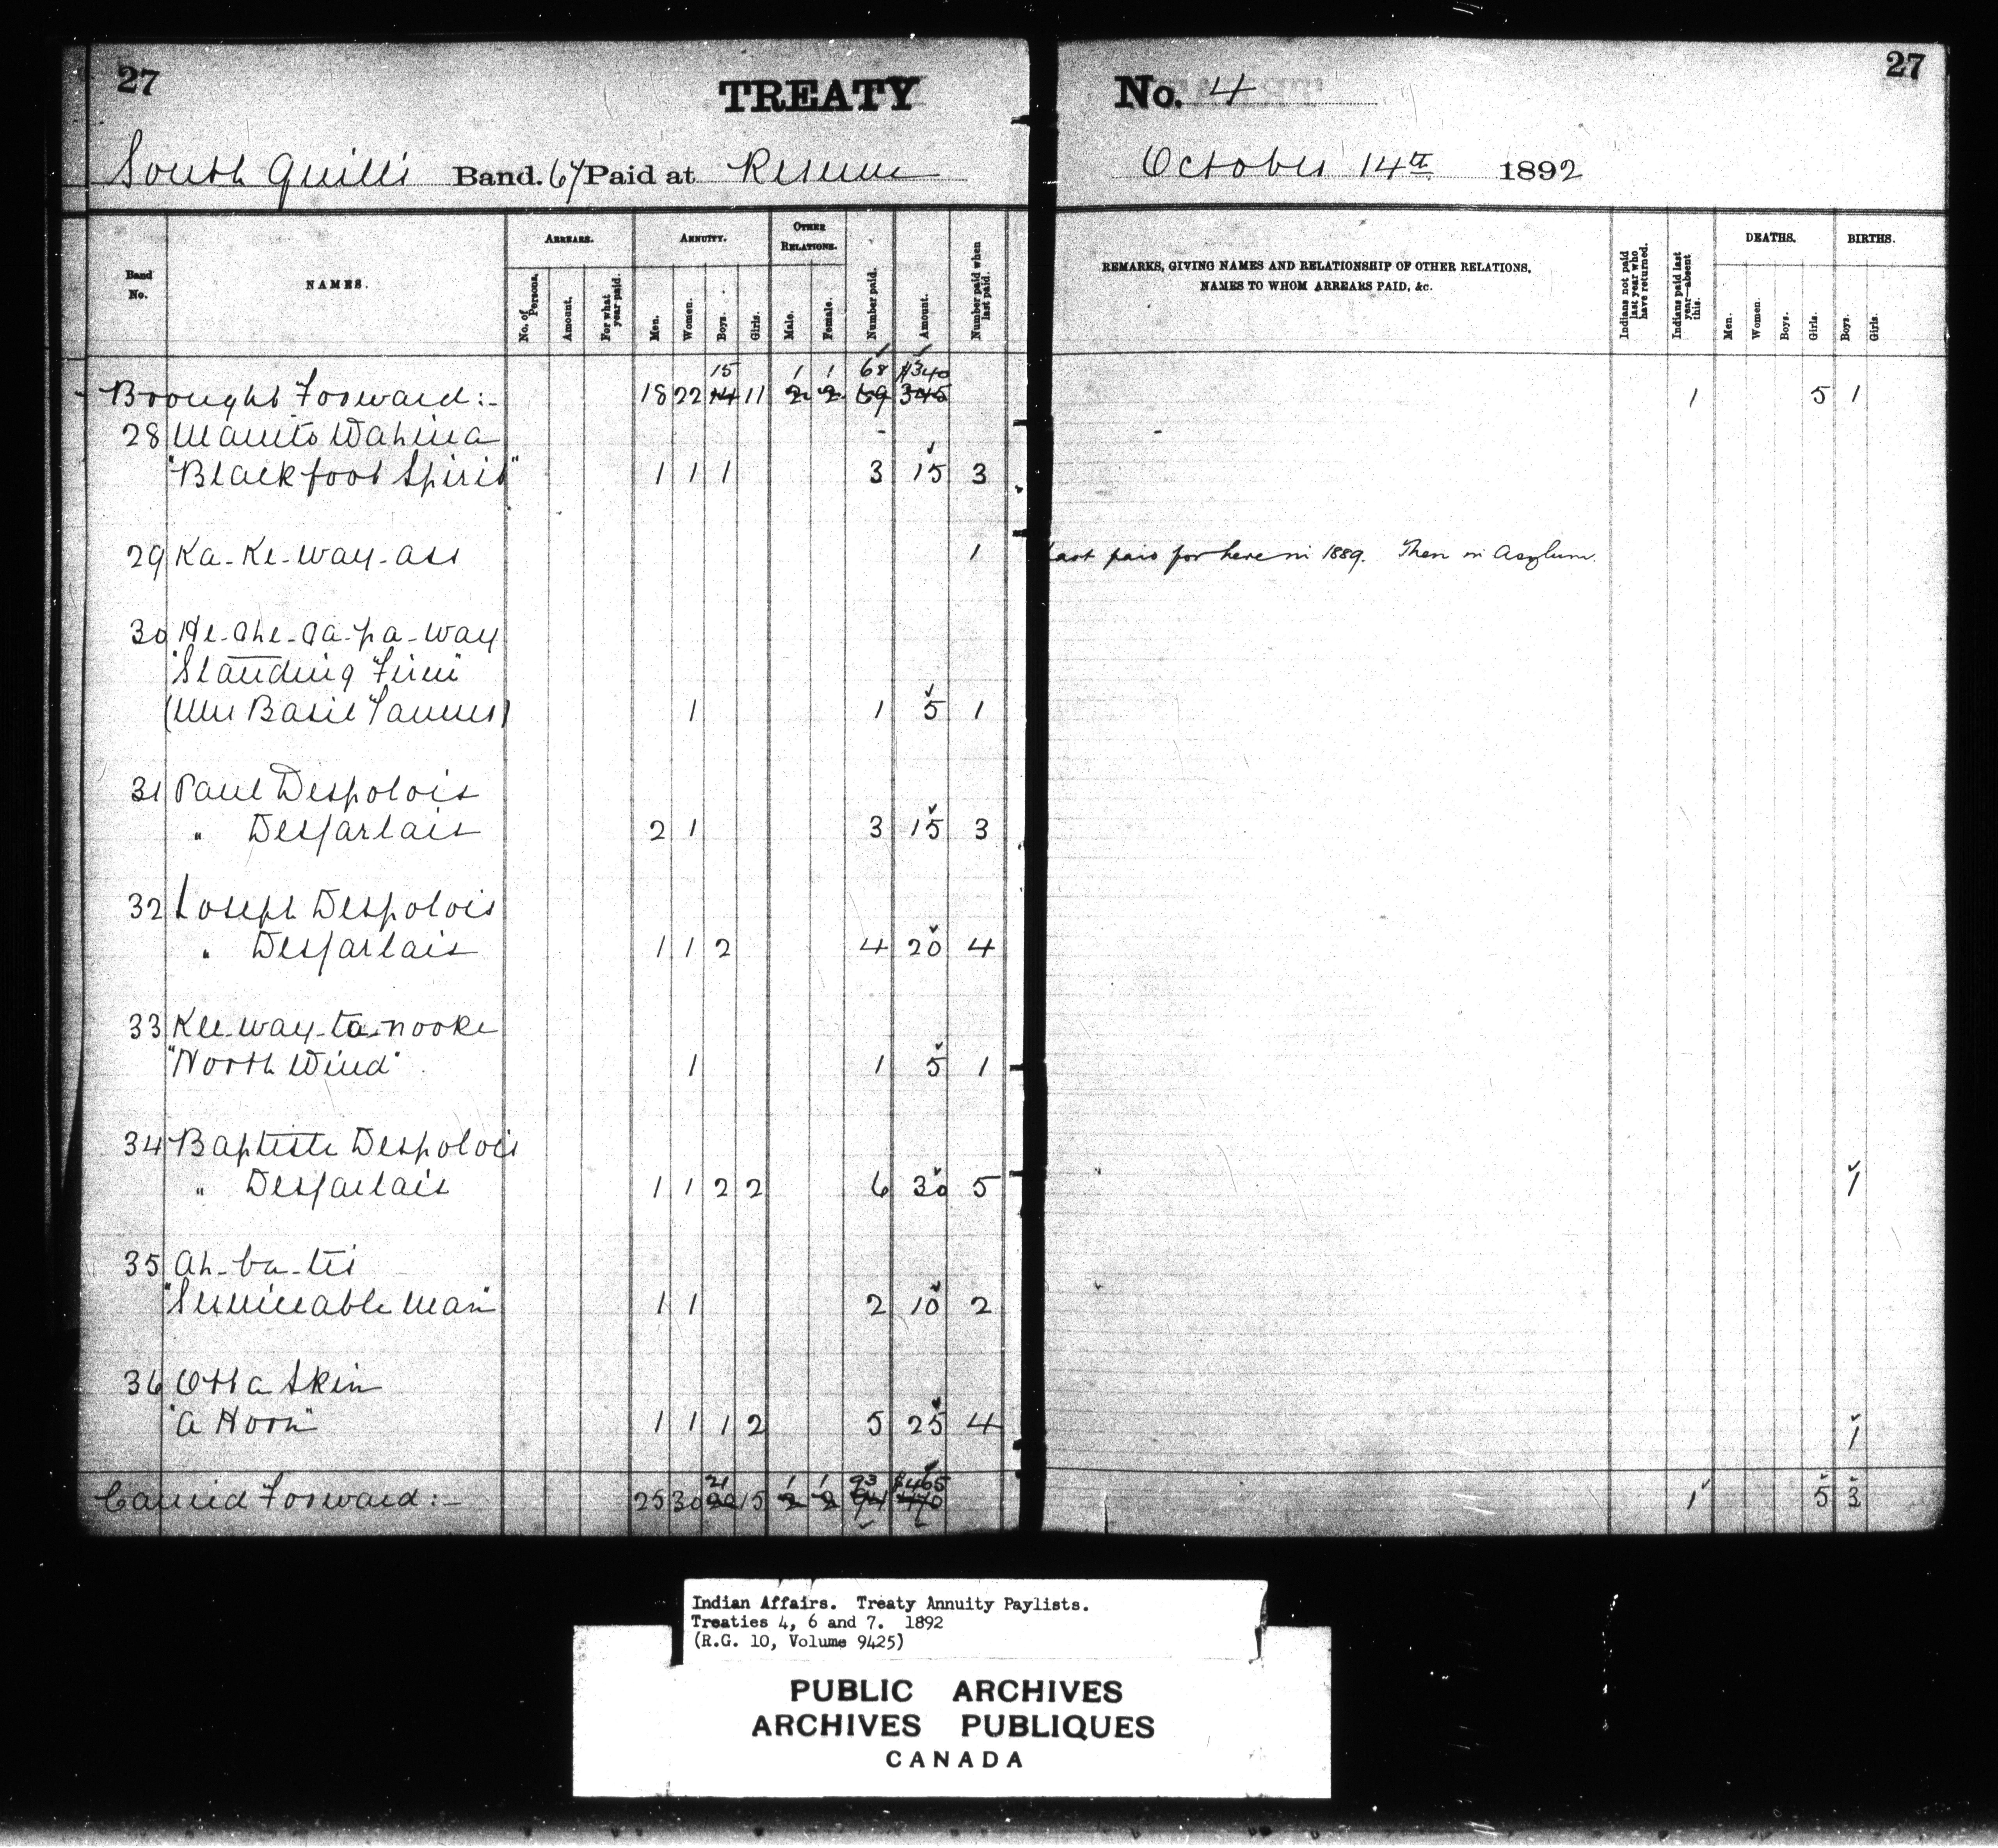 27
TREATY No. 4
27
South Quill's Band. 67 Paid at Reserve October 14th 1892
Band No.
NAMES.
ARREARS.
No. of Persons.
Amount.
For what year paid.
ANNUITY.
Men.
Women.
Boys.
Girls.
OTHER RELATIONS.
Male.
Female.
Number paid.
Amount.
Number paid when last paid.
REMARKS, GIVING NAMES AND RELATIONSHIP OF OTHER RELATIONS, NAMES TO WHOM ARREARS PAID, &c.
Indians not paid last year who have returned.
Indians paid last year—absent this.
DEATHS.
Men.
Women.
Boys.
Girls.
BIRTHS.
Boys.
Girls.
15 1 1 68 $340
Brought Forward:- 18 22 14 11 2 2 69 345 1 5 1
28 Manito Wahina
"Blackfoot Spirit" 1 1 1 3 15 3
29 Ka-Ke-way-ass 1 Last paid for here in 1889. Then in Asylum.
30 He-che-ca-pa-way
"Standing Firm"
(Mrs Basil Tanner) 1 1 5 1
31 Paul Despolois
" Desjarlais 2 1 3 15 3
32 Joseph Despolois
" Desjarlais 1 1 2 4 20 4
33 Kee-way-ta-nooke
"North Wind" 1 1 5 1
34 Baptiste Despolois
" Desjarlais 1 1 2 2 6 30 5 1
35 Ah-ba-tis
"Serviceable Man" 1 1 2 10 2
36 Otta Skin
"A Horn" 1 1 1 2 5 25 4 1
21 1 1 93 $465
Carried Forward:- 25 30 20 15 2 2 94 470 1 5 3
Indian Affairs. Treaty Annuity Paylists.
Treaties 4, 6 and 7. 1892
(R.G. 10, Volume 9425)
PUBLIC ARCHIVES
ARCHIVES PUBLIQUES
CANADA